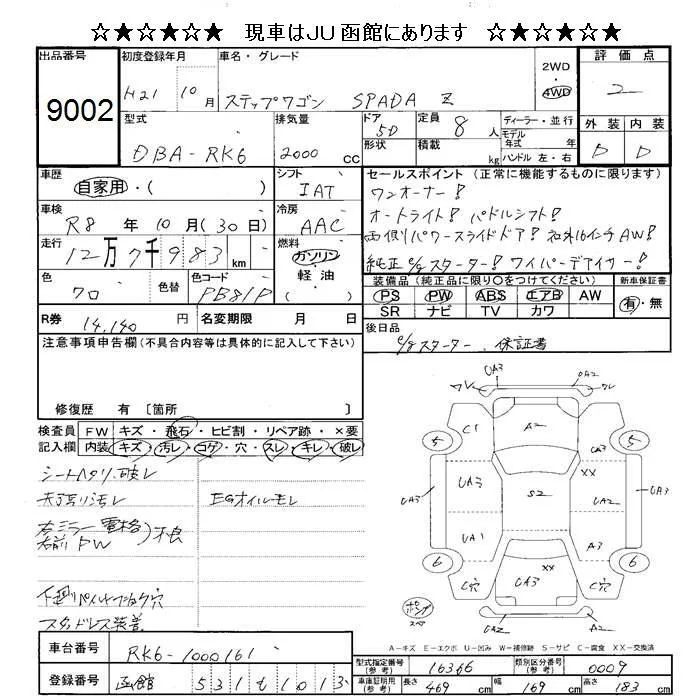 ☆★☆★☆★ 現車はJU函館にあります ☆★☆★☆★
出品番号 初度登録年月 車名・グレード 2WD 評価点
9002 H21 10月 ステップワゴン SPADA Z 4WD 2
型式 排気量 ドア 5D 定員 8人 ディーラー・並行 外装 内装
DBA-RK6 2000cc 形状 積載 kg モデル年式 年 D D
ハンドル 左・右
車歴 シフト セールスポイント (正常に機能するものに限ります)
自家用・( ) IAT ワンオーナー!
車検 R8年10月(30日) 冷房 AAC オートライト! パドルシフト!
走行 12万7千983km 燃料 ガソリン・軽油・( ) 両側パワースライドドア! 社外16インチAW!
純正e/gスターター! ワイパーデアイサー!
色 クロ 色替 色コード PB81P
装備品 (純正品に限り○をつけてください) 新車保証書
PS PW ABS エアB AW 有・無
SR ナビ TV カワ
R券 14,140円 名変期限 月 日
後日品 e/gスターター、保証書
注意事項申告欄(不具合内容等は具体的に記入して下さい)
修復歴 有 [箇所 ]
検査員 FW キズ・飛石・ヒビ割・リペア跡・×要
記入欄 内装 キズ・汚レ・コゲ・穴・スレ・キレ・破レ
シートヘタリ、破レ
天張り汚レ EGオイルモレ
右ミラー電格
右前PW 不良
下廻り 穴
スタッドレス装着
UA3 UA2
C1 A2
5 5
UA3 UA3 S2 XX UA2 UA3
UA1 A3
6 6
C穴 UA3 XX C穴
UA2 A2
スペア
A-キズ E-エクボ U-凹み W-補修跡 S-サビ C-腐食 XX-交換済
車台番号 RK6-1000161
型式指定番号(参考) 16366 類別区分番号(参考) 0009
登録番号 函館 531 も 1013
車庫証明用(参考) 長さ 469cm 幅 169cm 高さ 183cm